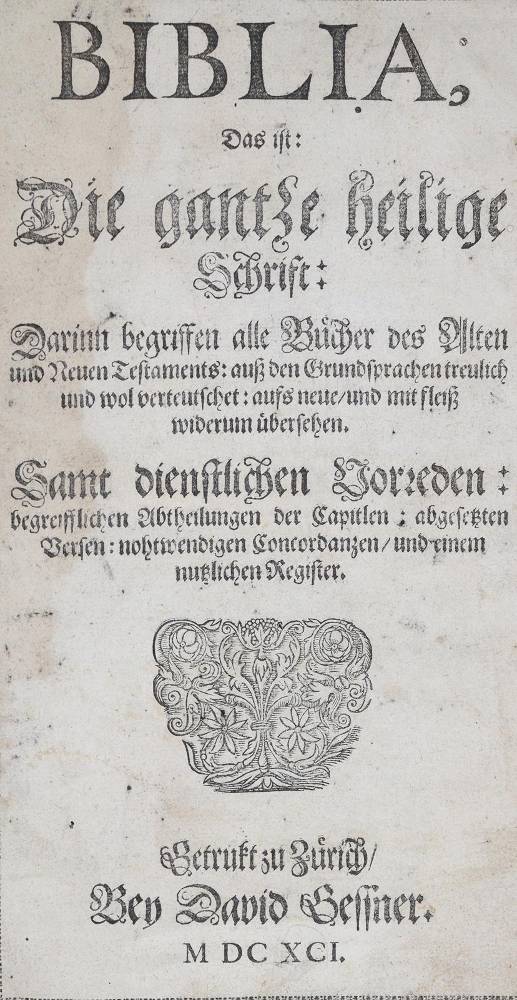 BIBLIA,
Das ist:
Die gantze heilige
Schrift:
Darinn begriffen alle Bücher des Alten
und Neuen Testaments: auß den Grundsprachen treulich
und wol verteutschet: aufs neue/und mit fleiß
widerum übersehen.
Samt dienstlichen Vorreden:
begreifflichen Abtheilungen der Capitlen: abgesetzten
Versen: nohtwendigen Concordanzen/und einem
nutzlichen Register.
Getrukt zu Zürich/
Bey David Gessner.
M DC XCI.